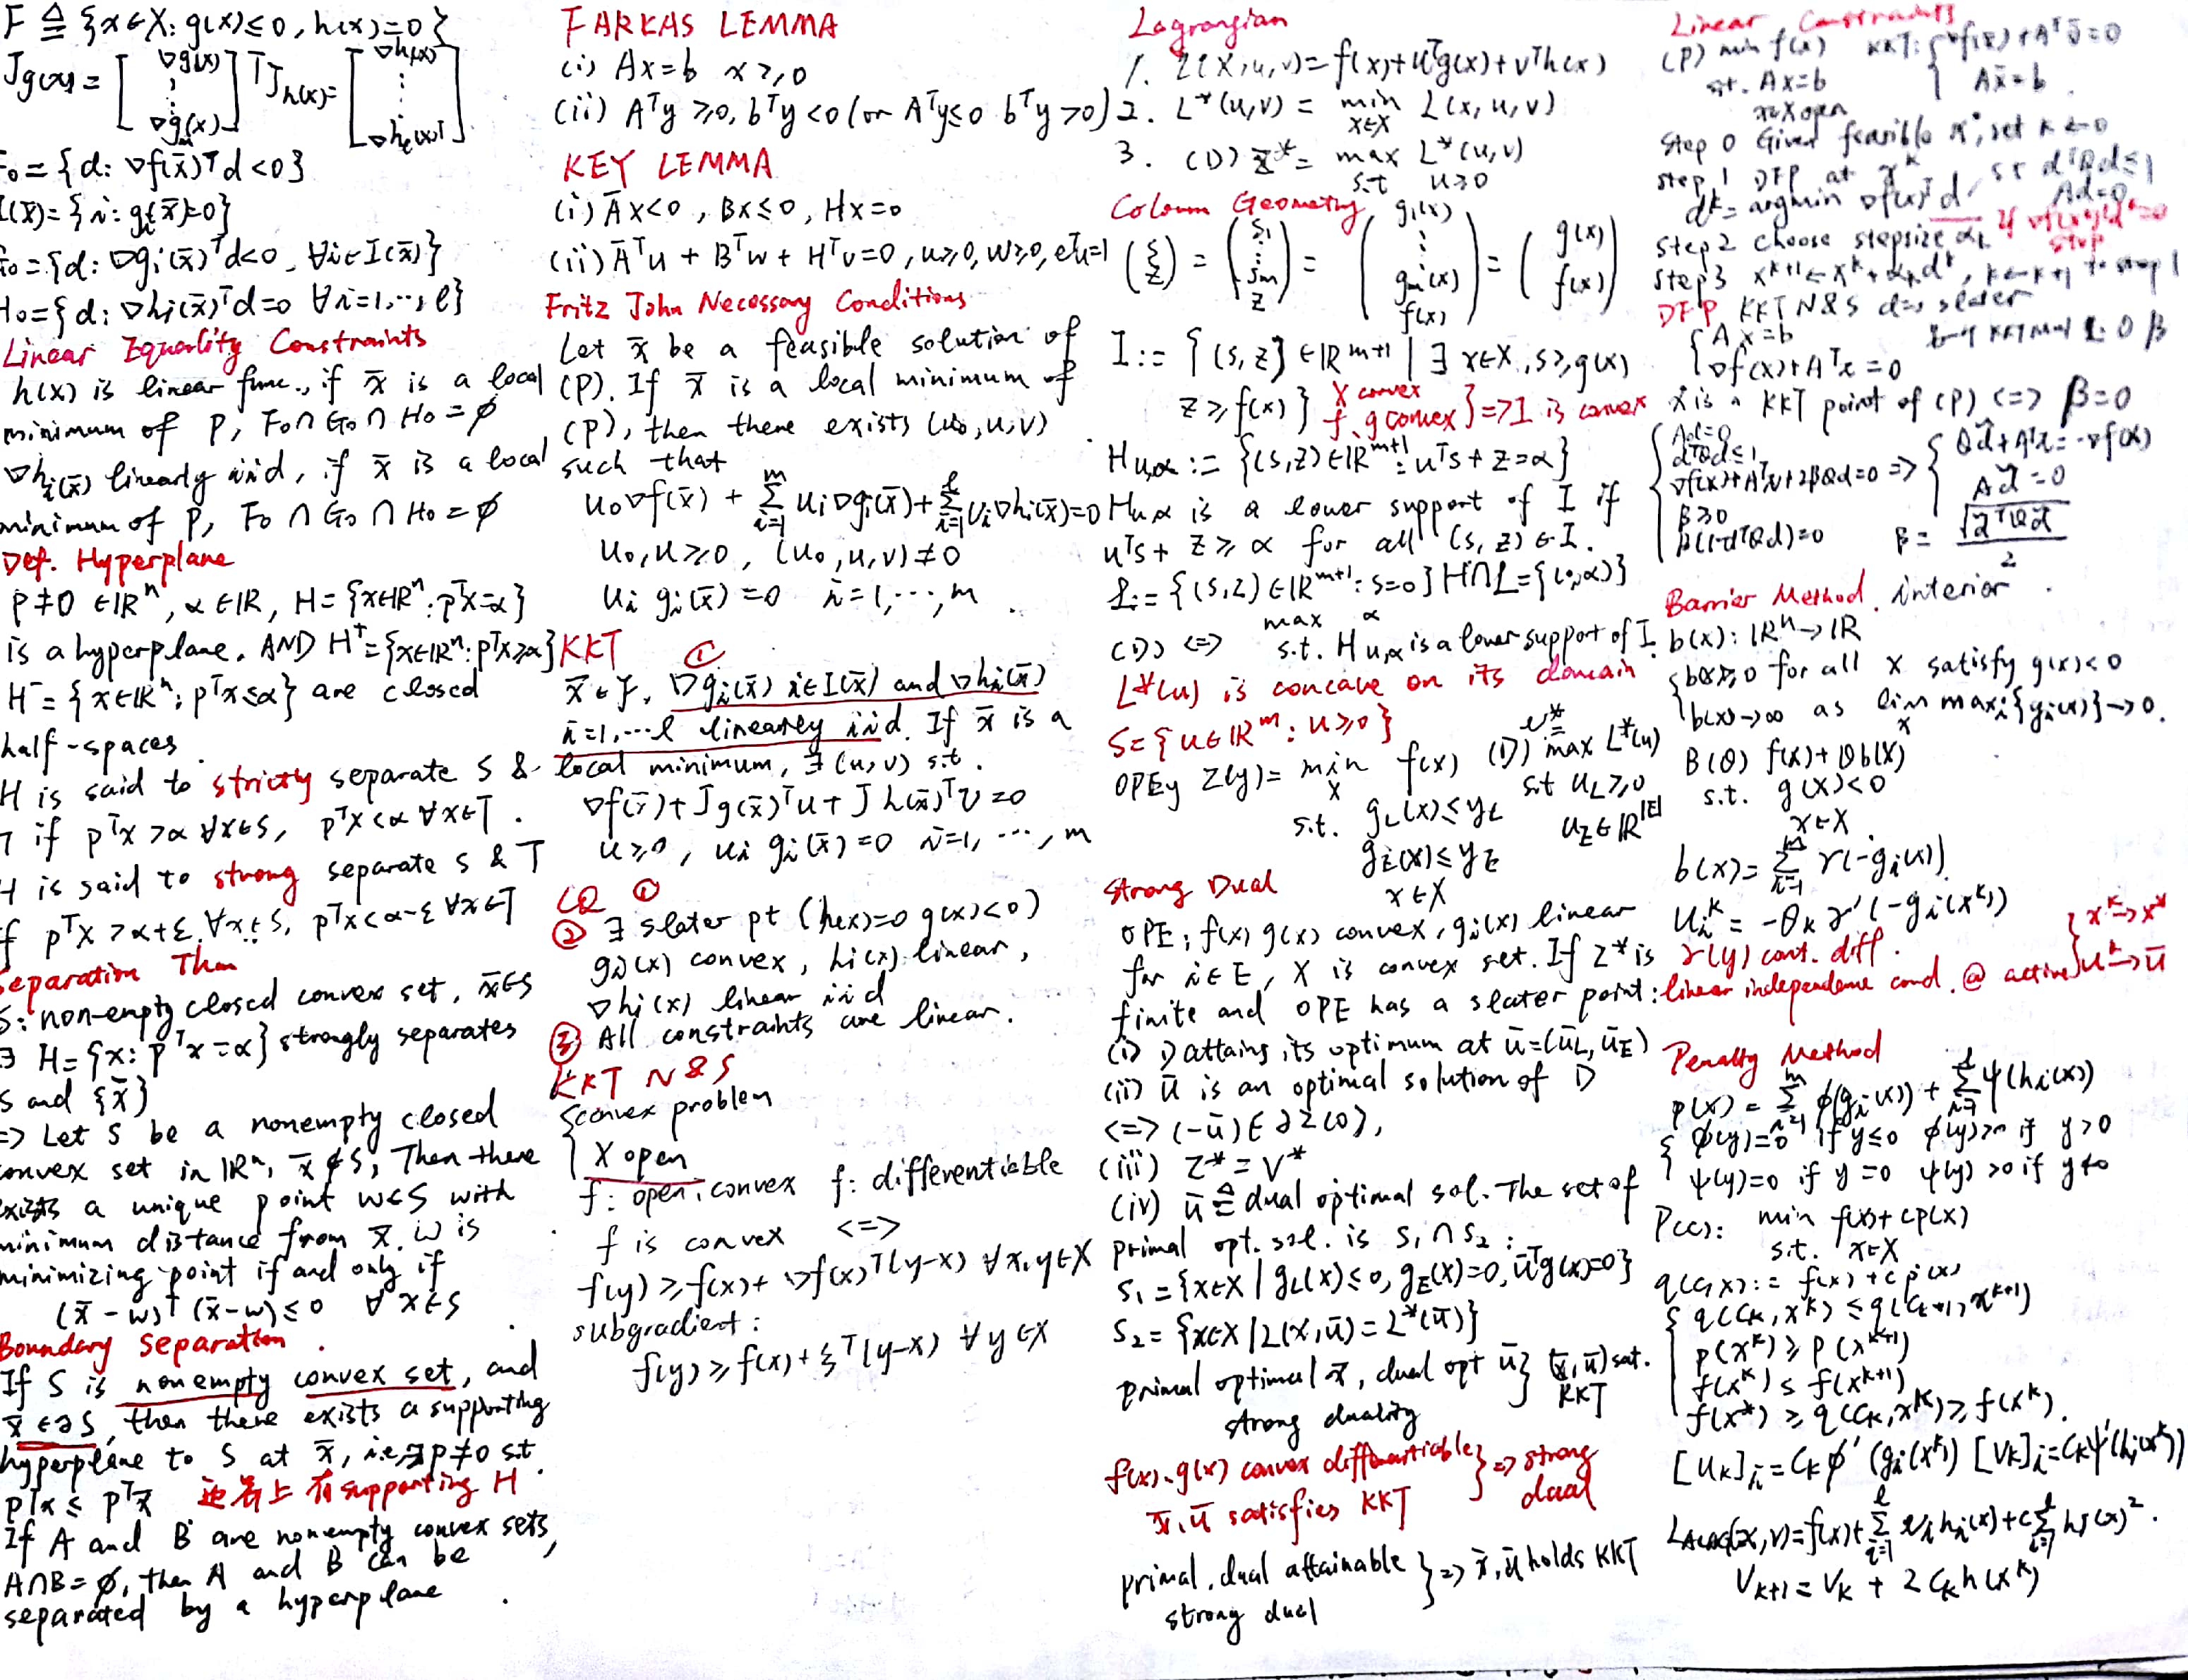 F ≜ {x∈X: g(x)≤0, h(x)=0}
Jg(x) = [∇g₁(x) ⋮ ∇gₘ(x)]ᵀ Jh(x) = [∇h₁(x) ⋮ ∇hₗ(x)ᵀ]
F₀ = {d: ∇f(x̄)ᵀd<0}
I(x̄) = {i: gᵢ(x̄)=0}
G₀ = {d: ∇gᵢ(x̄)ᵀd<0, ∀i∈I(x̄)}
H₀ = {d: ∇hᵢ(x̄)ᵀd=0 ∀i=1,⋯,ℓ}
Linear Equality Constraints
h(x) is linear func., if x̄ is a local
minimum of P, F₀∩G₀∩H₀=∅
∇hᵢ(x̄) linearly ind, if x̄ is a local
minimum of P, F₀∩G₀∩H₀=∅
Def. Hyperplane
p≠0 ∈ℝⁿ, α∈ℝ, H={x∈ℝⁿ: pᵀx=α}
is a hyperplane. AND H⁺={x∈ℝⁿ: pᵀx≥α}
H⁻={x∈ℝⁿ: pᵀx≤α} are closed
half-spaces.
H is said to strictly separate S &
T if pᵀx>α ∀x∈S, pᵀx<α ∀x∈T.
H is said to strong separate S & T
if pᵀx>α+ε ∀x∈S, pᵀx<α-ε ∀x∈T
Separation Thm
S: non-empty closed convex set, x̄∈S
∃ H={x: pᵀx=α} strongly separates
S and {x̄}
=> Let S be a nonempty closed
convex set in ℝⁿ, x̄∉S, Then there
exists a unique point w∈S with
minimum distance from x̄. w is
minimizing point if and only if
(x̄-w)ᵀ(x̄-w)≤0 ∀x∈S
Boundary Separation
If S is nonempty convex set, and
x̄∈∂S, then there exists a supporting
hyperplane to S at x̄, i.e, ∃p≠0 s.t.
pᵀx≤pᵀx̄ 边界上有supporting H
If A and B are nonempty convex sets,
A∩B=∅, then A and B can be
separated by a hyperplane.
FARKAS LEMMA
(i) Ax=b x≥0
(ii) Aᵀy≥0, bᵀy<0 (or Aᵀy≤0 bᵀy>0)
KEY LEMMA
(i) Āx<0, Bx≤0, Hx=0
(ii) Āᵀu + Bᵀw + Hᵀv=0, u≥0, w≥0, eᵀu=1
Fritz John Necessary Conditions
Let x̄ be a feasible solution of
(P). If x̄ is a local minimum of
(P), then there exists (u₀,u,v)
such that
u₀∇f(x̄) + Σᵢ₌₁ᵐ uᵢ∇gᵢ(x̄) + Σᵢ₌₁ˡ vᵢ∇hᵢ(x̄)=0
u₀,u≥0, (u₀,u,v)≠0
uᵢgᵢ(x̄)=0 i=1,⋯,m.
KKT ①
x̄∈F, ∇gᵢ(x̄) i∈I(x̄) and ∇hᵢ(x̄)
i=1,⋯ℓ linearly ind. If x̄ is a
local minimum, ∃(u,v) s.t.
∇f(x̄)+Jg(x̄)ᵀu+Jh(x̄)ᵀv=0
u≥0, uᵢgᵢ(x̄)=0 i=1,⋯,m
CQ ①
② ∃ slater pt (h(x)=0 g(x)<0)
gᵢ(x) convex, hᵢ(x) linear,
∇hᵢ(x) linear ind
③ All constraints are linear.
KKT N&S
{convex problem
X open
f: open, convex f: differentiable
f is convex <=>
f(y)≥f(x)+∇f(x)ᵀ(y-x) ∀x,y∈X
subgradient:
f(y)≥f(x)+ξᵀ(y-x) ∀y∈X
Lagrangian
1. L(x,u,v)=f(x)+uᵀg(x)+vᵀh(x)
2. L*(u,v) = min x∈X L(x,u,v)
3. (D) z* = max L*(u,v)
s.t u≥0
Column Geometry
(s z) = (s₁ ⋮ sₘ z) = (g₁(x) ⋮ gₘ(x) f(x)) = (g(x) f(x))
I := {(s,z)∈ℝᵐ⁺¹ | ∃x∈X, s≥g(x)
z≥f(x)} X convex f, g convex} => I is convex
Hu,α := {(s,z)∈ℝᵐ⁺¹: uᵀs+z=α}
Hu,α is a lower support of I if
uᵀs+z≥α for all (s,z)∈I.
L:={(s,z)∈ℝᵐ⁺¹: s=0} H∩L={(0,α)}
(D) <=> max α
s.t. Hu,α is a lower support of I.
L*(u) is concave on its domain
S={u∈ℝᵐ: u≥0}
OPEy z(y)= min x f(x) (D) v*= max L*(u)
s.t. g_L(x)≤y_L s.t u_L≥0
g_E(x)≤y_E u_E∈ℝ|E|
x∈X
Strong Dual
OPE: f(x) g(x) convex, gᵢ(x) linear
for i∈E, X is convex set. If z* is
finite and OPE has a slater point:
(i) D attains its optimum at ū=(ū_L,ū_E)
(ii) ū is an optimal solution of D
<=> (-ū)∈∂z(0),
(iii) z*=v*
(iv) ū ≜ dual optimal sol. The set of
primal opt. sol. is S₁∩S₂:
S₁={x∈X | g_L(x)≤0, g_E(x)=0, ūᵀg(x)=0}
S₂={x∈X | L(x,ū)=L*(ū)}
primal optimal x̄, dual opt ū} (x̄,ū) sat.
strong duality KKT
f(x), g(x) convex differentiable} => strong
x̄,ū satisfies KKT dual
primal, dual attainable} => x̄,ū holds KKT
strong dual
Linear Constraints
(P) min f(x) KKT: {∇f(x̄)+Aᵀū=0
s.t. Ax=b Ax̄=b
x∈X open
Step 0 Given feasible x⁰, set k←0
step 1 DFP at xᵏ
dᵏ=argmin ∇f(x)ᵀd, s.t dᵀQd≤1 Ad=0
If ∇f(xᵏ)ᵀdᵏ=0 stop
step 2 choose stepsize αₖ
step 3 xᵏ⁺¹←xᵏ+αₖdᵏ, k←k+1 to step 1
DFP KKT N&S d=0 slater
{Ax=b
∇f(x)+Aᵀπ=0
x̄ is a KKT point of (P) <=> β=0
{Ad=0
dᵀQd≤1
∇f(x)+Aᵀπ+2βQd=0 => {Qd̃+Aᵀπ=-∇f(x)
β≥0 Ad̃=0
β(1-dᵀQd)=0 β=√(d̃ᵀQd̃)/2
Barrier Method. interior.
b(x): ℝⁿ→ℝ
{b(x)≥0 for all x satisfy g(x)<0
b(x)→∞ as lim x maxᵢ{gᵢ(x)}→0.
B(θ) f(x)+θb(x)
s.t. g(x)<0
x∈X
b(x)=Σᵢ₌₁ᵐ γ(-gᵢ(x))
uᵢᵏ=-θₖγ'(-gᵢ(xᵏ))
γ(y) cont. diff.
linear independence cond. @ active} xᵏ→x* uᵏ→ū
Penalty Method
p(x)=Σᵢ₌₁ᵐ φ(gᵢ(x))+Σᵢ₌₁ˡ ψ(hᵢ(x))
{φ(y)=0 if y≤0 φ(y)>0 if y>0
ψ(y)=0 if y=0 ψ(y)>0 if y≠0
P(c): min f(x)+cp(x)
s.t. x∈X
q(c,x):=f(x)+cp(x)
{q(cₖ,xᵏ)≤q(cₖ₊₁,xᵏ⁺¹)
p(xᵏ)≥p(xᵏ⁺¹)
f(xᵏ)≤f(xᵏ⁺¹)
f(x*)≥q(cₖ,xᵏ)≥f(xᵏ).
[uₖ]ᵢ=cₖφ'(gᵢ(xᵏ)) [vₖ]ᵢ=cₖψ'(hᵢ(xᵏ))
L_ALAG(x,v)=f(x)+Σᵢ₌₁ˡ vᵢhᵢ(x)+cΣᵢ₌₁ˡ hᵢ(x)².
vₖ₊₁=vₖ+2cₖh(xᵏ)